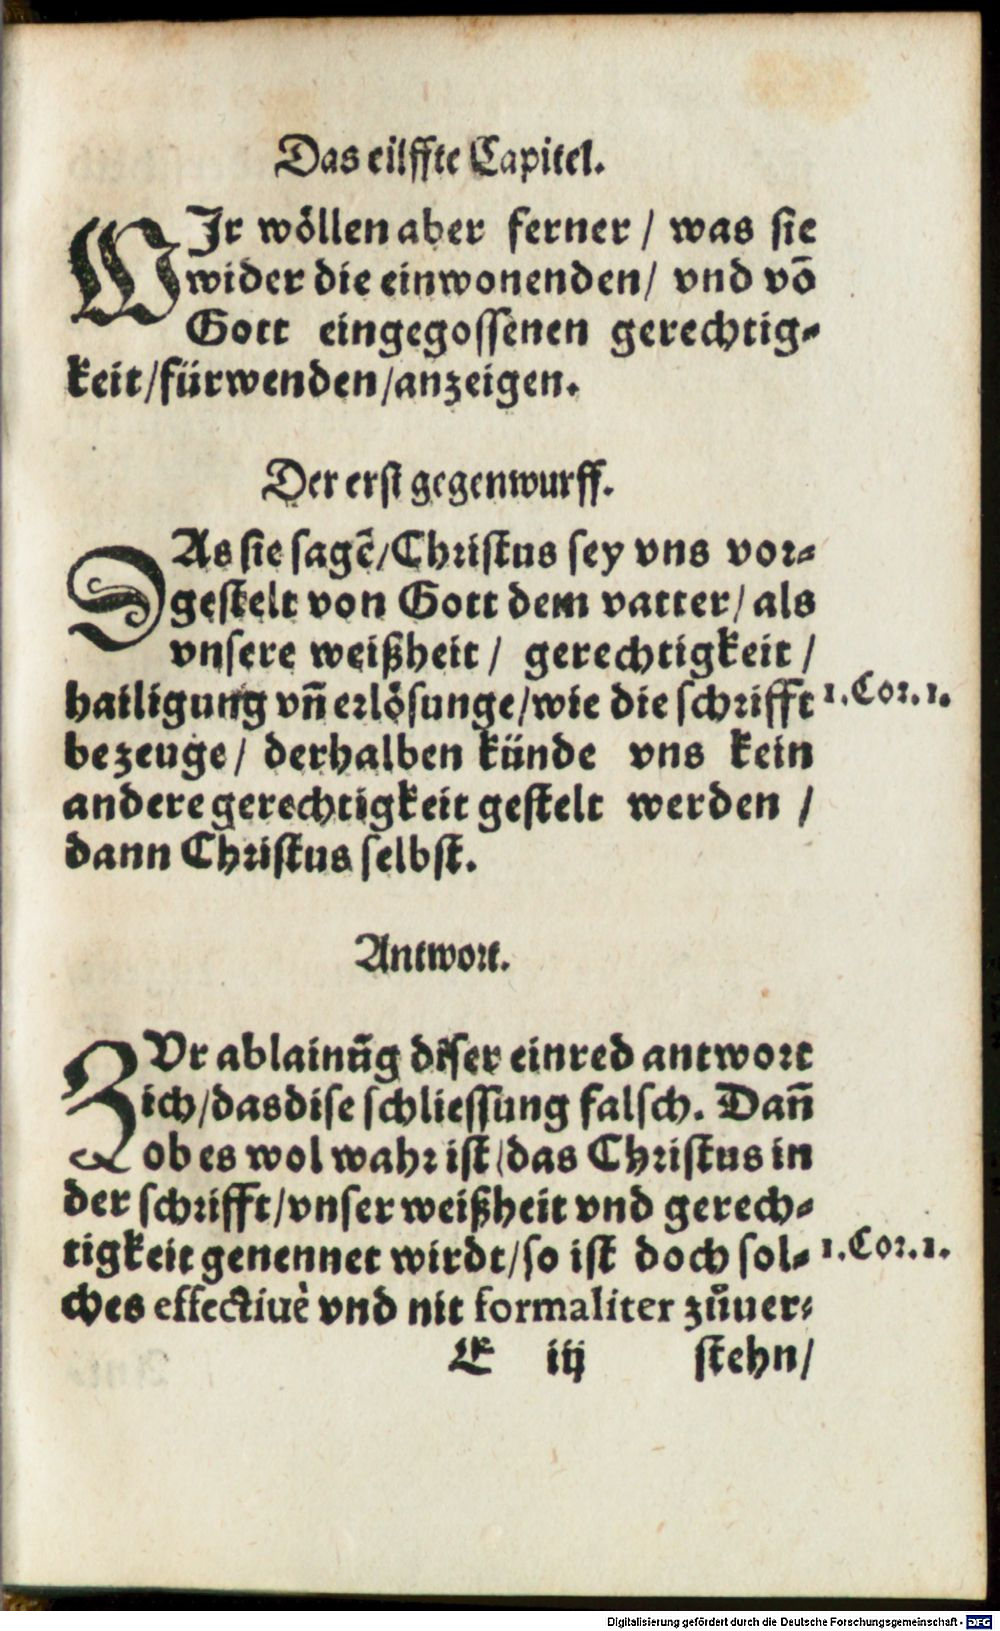 Das eilffte Capitel.
WIr wöllen aber ferner / was sie
wider die einwonenden / vnd võ
Gott eingegossenen gerechtig-
keit / fürwenden / anzeigen.
Der erst gegenwurff.
DAs sie sagẽ / Christus sey vns vor-
gestelt von Gott dem vatter / als
vnsere weißheit / gerechtigkeit /
hailigung vñ erlösunge / wie die schrifft
1. Cor. 1.
bezeuge / derhalben künde vns kein
andere gerechtigkeit gestelt werden /
dann Christus selbst.
Antwort.
ZVr ablainũg diser einred antwort
ich / das dise schliessung falsch. Dañ
ob es wol wahr ist / das Christus in
der schrifft / vnser weißheit vnd gerech-
tigkeit genennet wirdt / so ist doch sol-
1. Cor. 1.
ches effectiuè vnd nit formaliter zůuer-
E iij stehn /
Digitalisierung gefördert durch die Deutsche Forschungsgemeinschaft - DFG